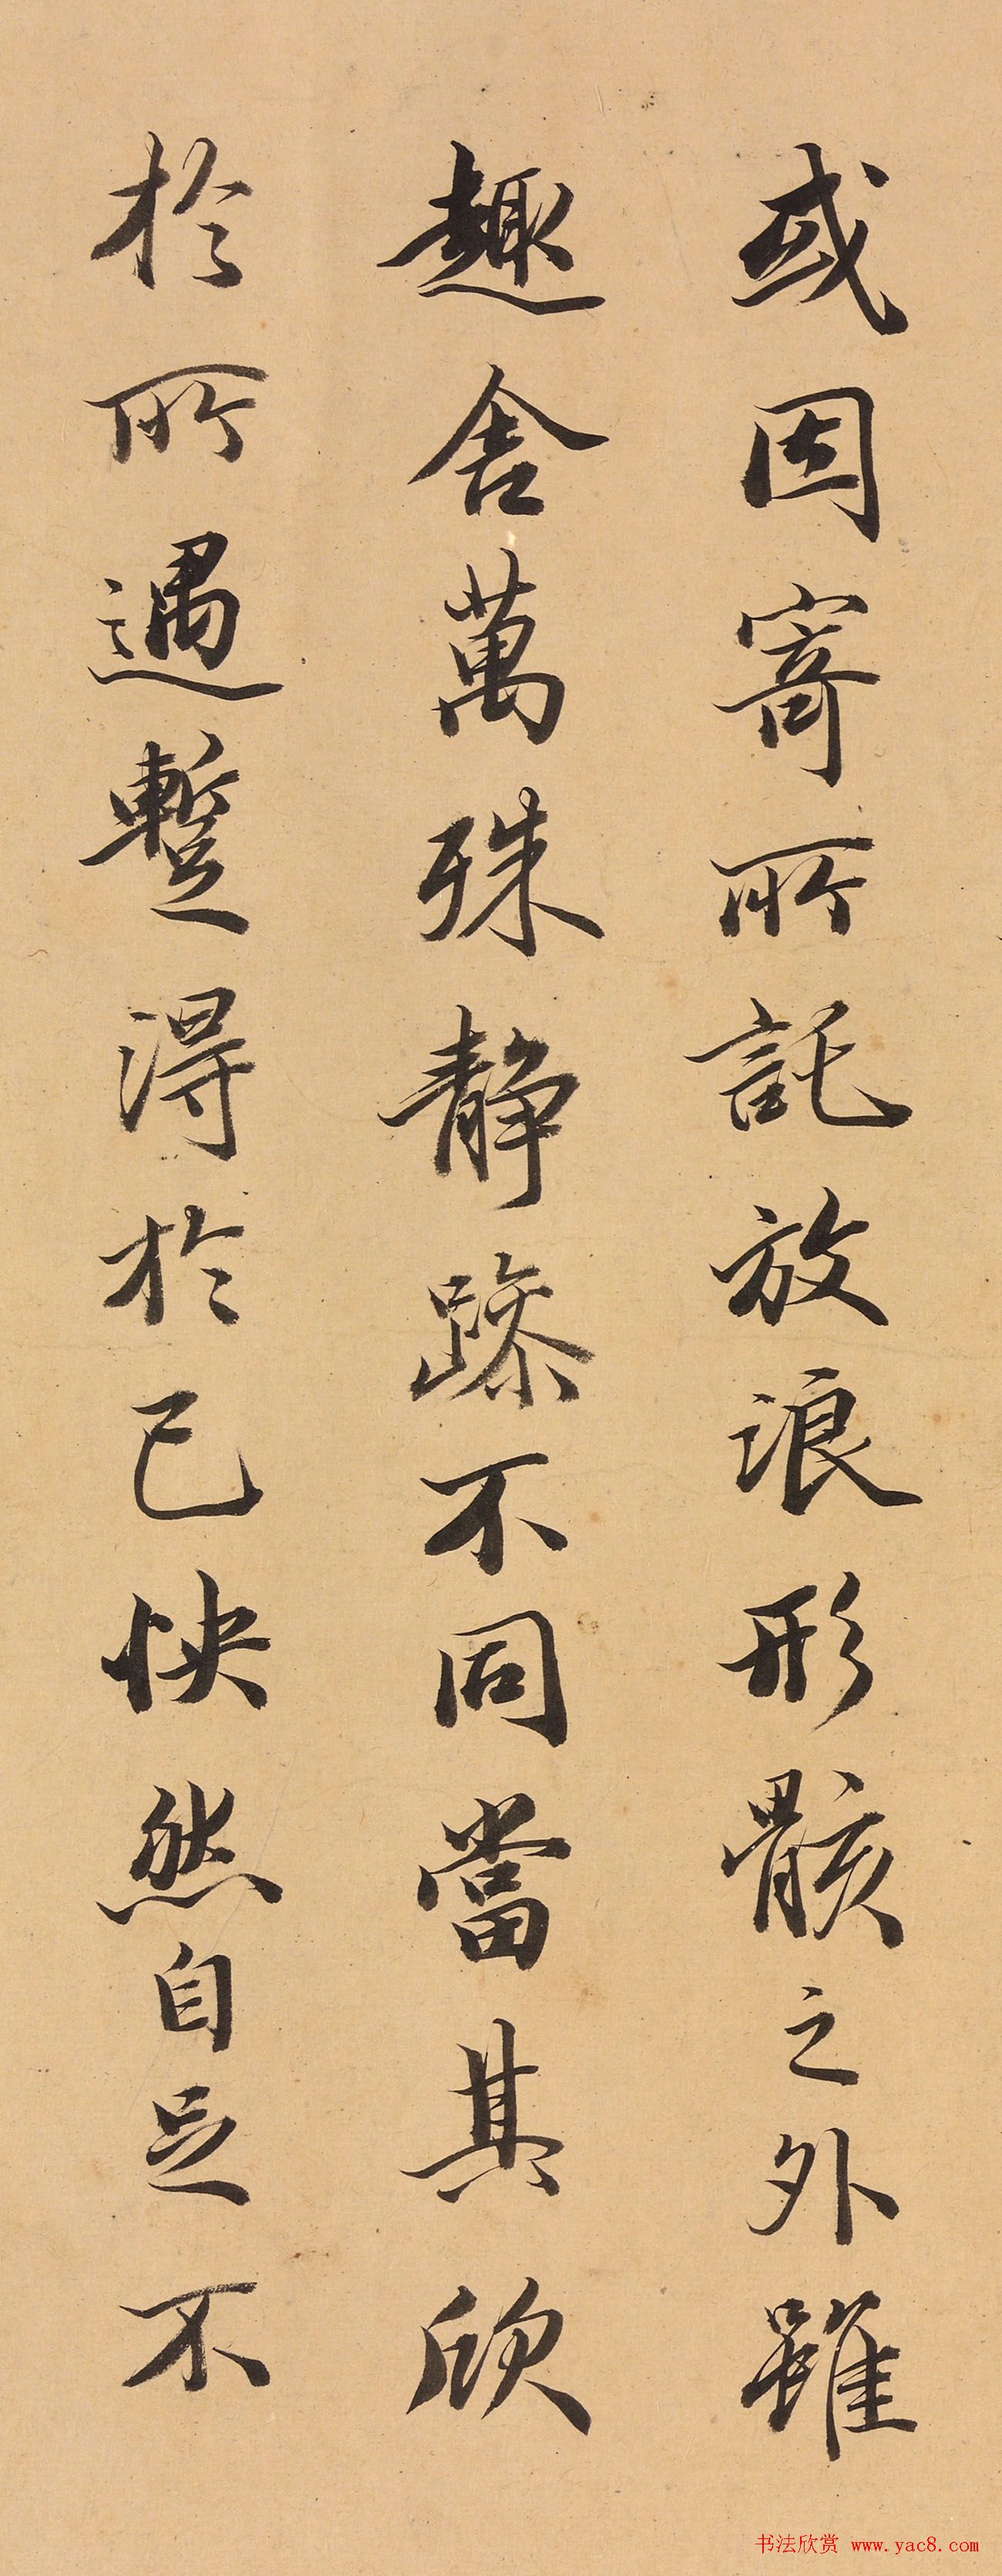 或因寄所託放浪形骸之外雖
趣舍萬殊靜躁不同當其欣
於所遇蹔得於己怏然自足不
书法欣赏 www.yac8.com